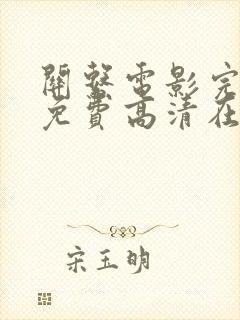 關繫電影完
免費高清在
宋玉明